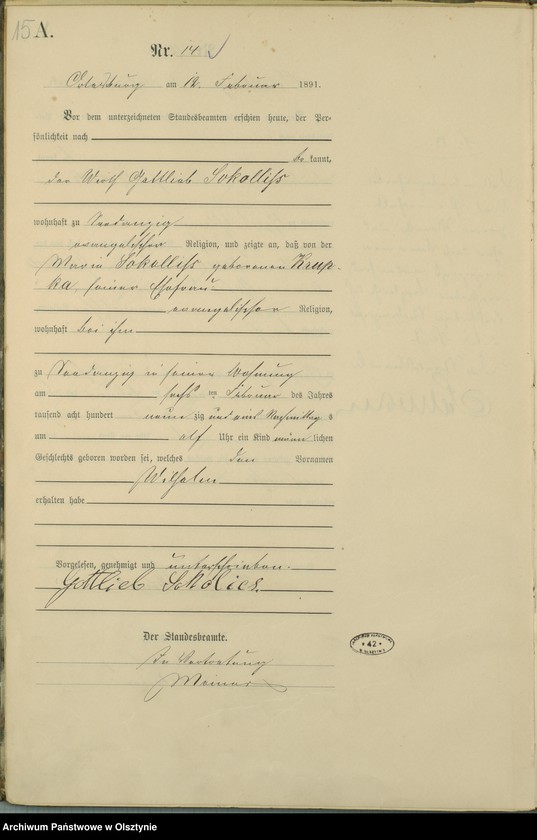 15 A.
Nr. 14
am 12. Februar 1891.
Vor dem unterzeichneten Standesbeamten erschien heute, der Per-
sönlichkeit nach
be kannt,
der Wirth Gottlieb Sokolliss
wohnhaft zu Seedanzig
evangelischer Religion, und zeigte an, daß von der
Marie Sokolliss geborenen Krup-
ka, seiner Ehefrau
evangelischer Religion,
wohnhaft bei ihm
zu Seedanzig in seiner Wohnung
am sechs ten Februar des Jahres
tausend acht hundert neun zig und eins Nachmittag s
um elf Uhr ein Kind männ lichen
Geschlechts geboren worden sei, welches den Vornamen
Wilhelm
erhalten habe
Vorgelesen, genehmigt und unterschrieben.
Gottlieb Sokolies.
Der Standesbeamte.
In Vertretung
42
Archiwum Państwowe w Olsztynie